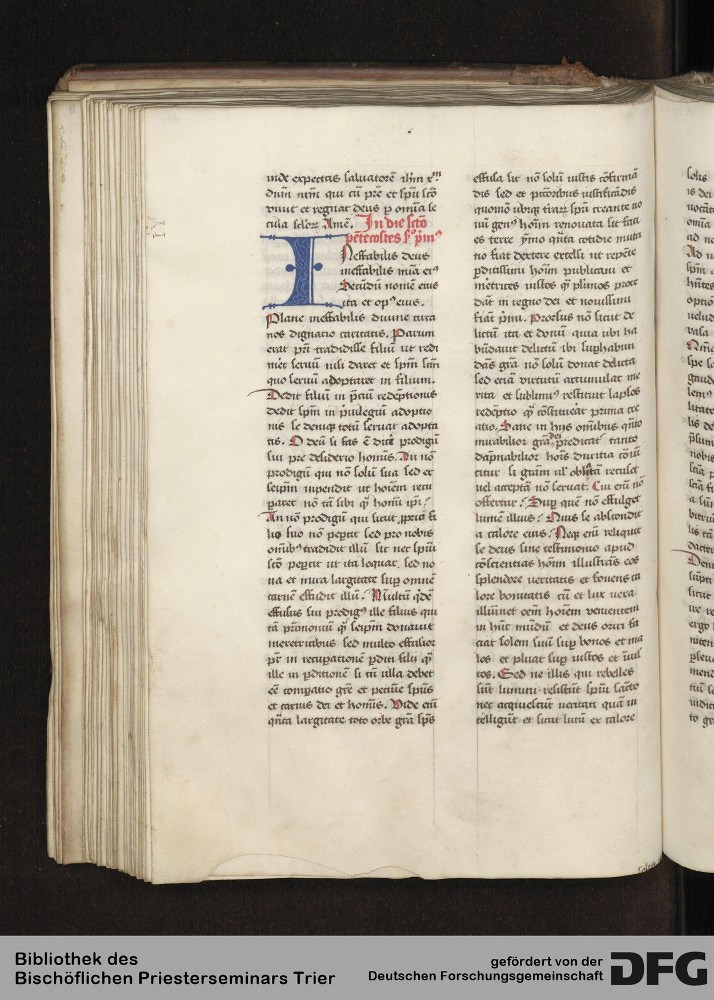 inde expectas saluatorē ihm xpm
dnm nrm qui cū pre et spū scō
viuit et regnat deus p omia se
cula sclorz Amē. In die scto
pētecostes s° pm⁹
INeffabilis deus
ineffabilis mīa ei⁹
Secūdū nomē eius
ita et op⁹ eius.
Plane ineffabilis diuine circa
nos dignatio caritatis. Parum
erat pri tradidisse filiū ut redi
m̄et seruū nisi daret et spm scm
quo seruū adoptaret in filium.
Dedit filiū in p̄ciū redēptionis
dedit spm in p̄uilegiū adoptio
nis se deniqz totū seruat adopta
tis. O deū si fas ē dici prodigū
sui pre desiderio homīs. An nō
prodigū qui nō solū sua sed et
seipm inpendit ut hoīem recu
paret nō tā sibi qz homī ipi?
An nō prodigū qui sicut pprio fi
lio suo nō pepcit sed pro nobis
omībz tradidit illū sic nec spui
scō pepcit ut ita loquar sed no
ua et mira largitate sup omnē
carnē effudit illū? Multū qdē
effusus siue prodig⁹ ille filius qui
tā prīmoniū qz seipm donauit
meretricibus sed multo effusior
pr in recupatione pditi filii qz
ille in pditionē si tn ulla debet
eē compatio gre et pecūie spūs
et carnis dei et homīs. Vide enī
qnta largitate toto orbe gra spūs
effusa sit nō solū iustis cōfirmā
dis sed et pctoribus iustificādis
quomō ubiqz tirarz spū creante no
uū gen⁹ hoīm renouata sit faci
es terre ymo qnta cotidie muta
tio fiat dextere excelsi ut repēte
pditissimi hoīm publicani et
metrices iustos qz plimos proce
dāt in regno dei et nouissimi
fiāt pmi. Prorsus nō sicut de
lictū ita et donū quia ubi ha
būdauit delictū ibi suphabun
dās gra nō solū donat delicta
sed eciā virtutū accumulat me
rita et sublimi⁹ restituit lapsos
redēptio qz cōstituerat prima cre
atio. Sane in hys omībus qnto
mirabilior gra dei predicat tanto
dāpnabilior hoīs duritia cōuī
citur si gram ul' oblatā recuset
uel acceptā nō seruat. Cui enī nō
offertur? Sup quē nō effulget
lumē illius? Quis se abscondit
a calore eius? Neqz enī reliquit
se deus sine testimonio apud
cōscientias hoīm illustrās eos
splendore ueritatis et fouens ca
lore bonitatis cū et lux uera
illuīnet oēm hoīem venientem
in hūc mūdū et deus oriri fa
ciat solem suū sup bonos et ma
los et pluat sup iustos et iniu
stos. Sed ne illis qui rebelles
sūt lumini resistūt spūi sancto
nec acquiescūt ueritati quā in
telligūt et sicut lutū ex calore
Bibliothek des
Bischöflichen Priesterseminars Trier
gefördert von der
Deutschen Forschungsgemeinschaft
DFG